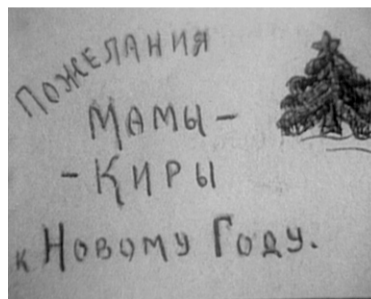 Пожелания
Мамы -
- Киры
к Новому Году.